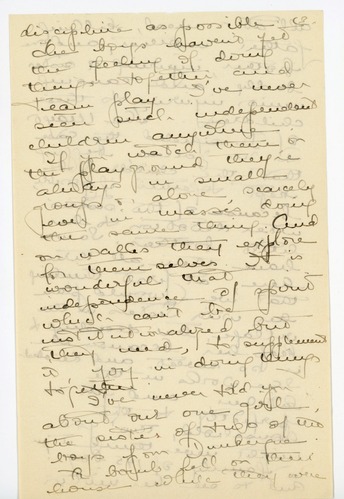 discipline as possible
The boys haven't yet
the feeling of doing
things together, and
team play. I've never
seen such independent
children anywhere.
If you watch them on
the playground they're
always in small
groups or alone, scarcely
ever in masses doing
the same thing. And
on walks they explore
for themselves. It is
wonderful that
independence of spirit
which can't be
institutionalized but
they need, to supplement
it joy in doing things
together.
I've never told you
about our one girl,
the sister of two of the
boys from Dunkerque.
A bomb fell on their
house while they were